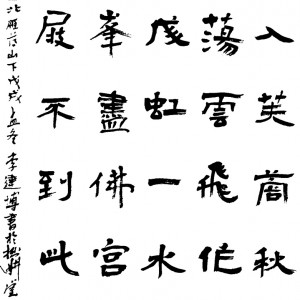 入芙秋
蕩雲飛作
虹一水
峯盡佛宮
屐不到此
北雁蕩山下戊戌孟冬李建博書於堂